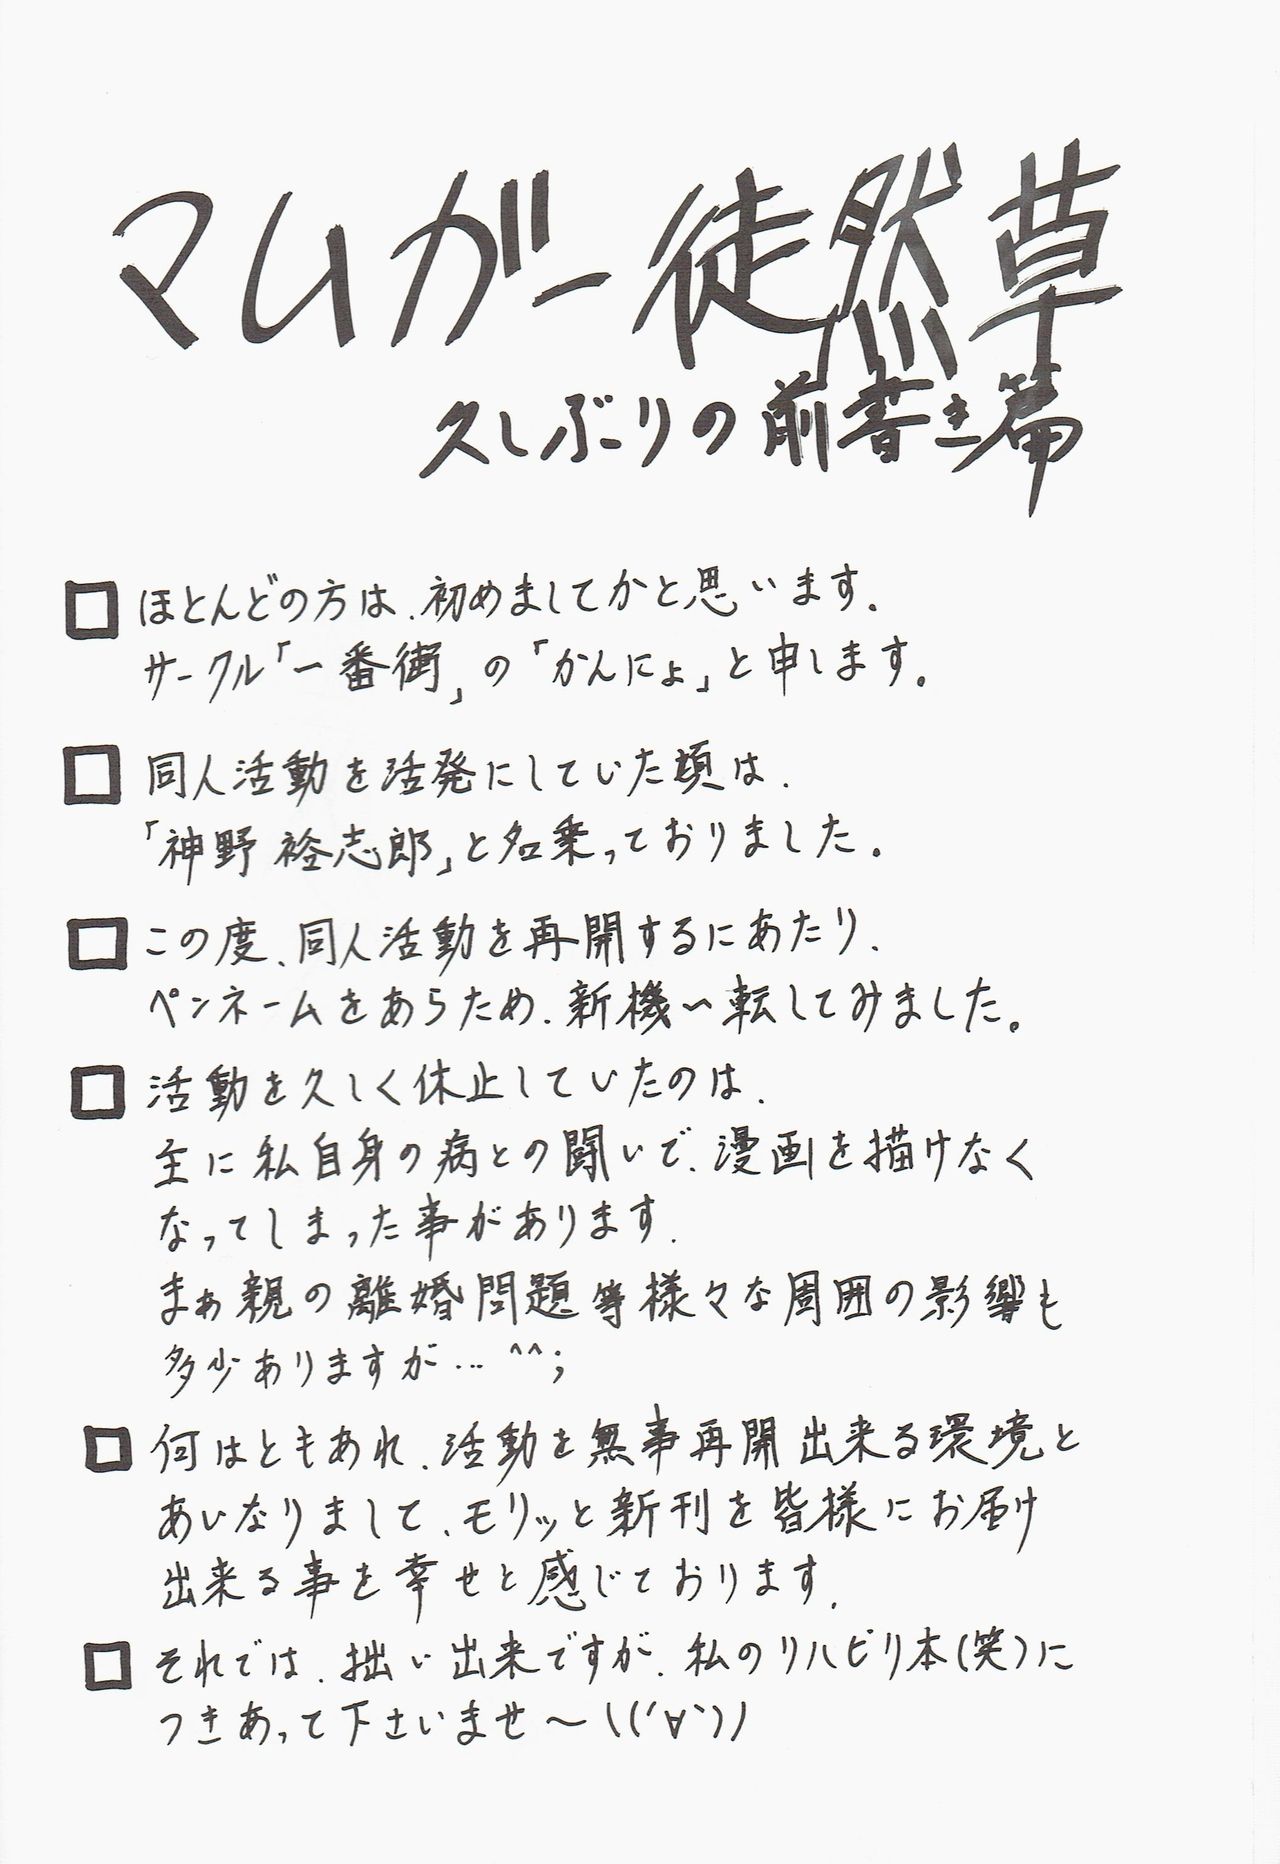 マムガー徒然草
久しぶりの前書き篇
□ほとんどの方は、初めましてかと思います。
サークル「一番街」の「かんにょ」と申します。
□同人活動を活発にしていた頃は、
「神野裕志郎」と名乗っておりました。
□この度、同人活動を再開するにあたり、
ペンネームをあらため、新機一転してみました。
□活動を久しく休止していたのは、
主に私自身の病との闘いで、漫画を描けなく
なってしまった事があります。
まぁ親の離婚問題等様々な周囲の影響も
多少ありますが…^^;
□何はともあれ、活動を無事再開出来る環境と
あいなりまして、モリッと新刊を皆様にお届け
出来る事を幸せと感じております。
□それでは、拙い出来ですが、私のリハビリ本(笑)に
つきあって下さいませ〜\(('∀'))/